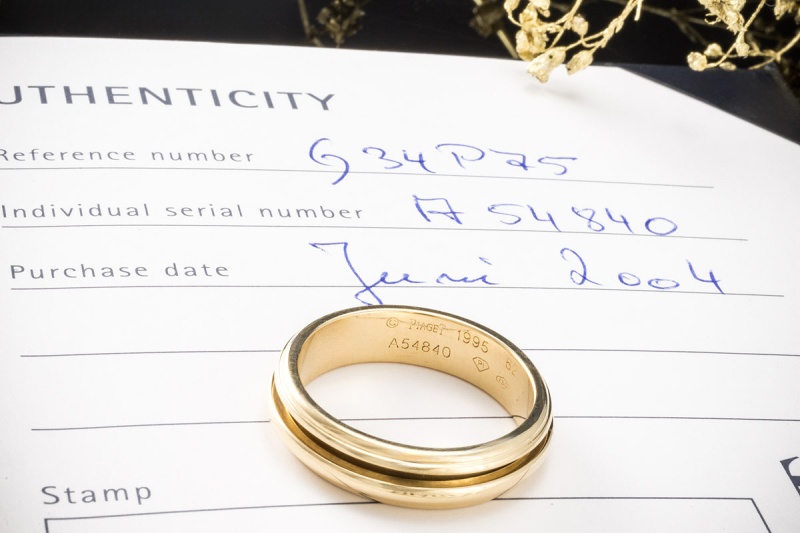 UTHENTICITY
Reference number G34P75
Individual serial number A 54840
Purchase date Juni 2004
© PIAGET 1995
A54840
Stamp